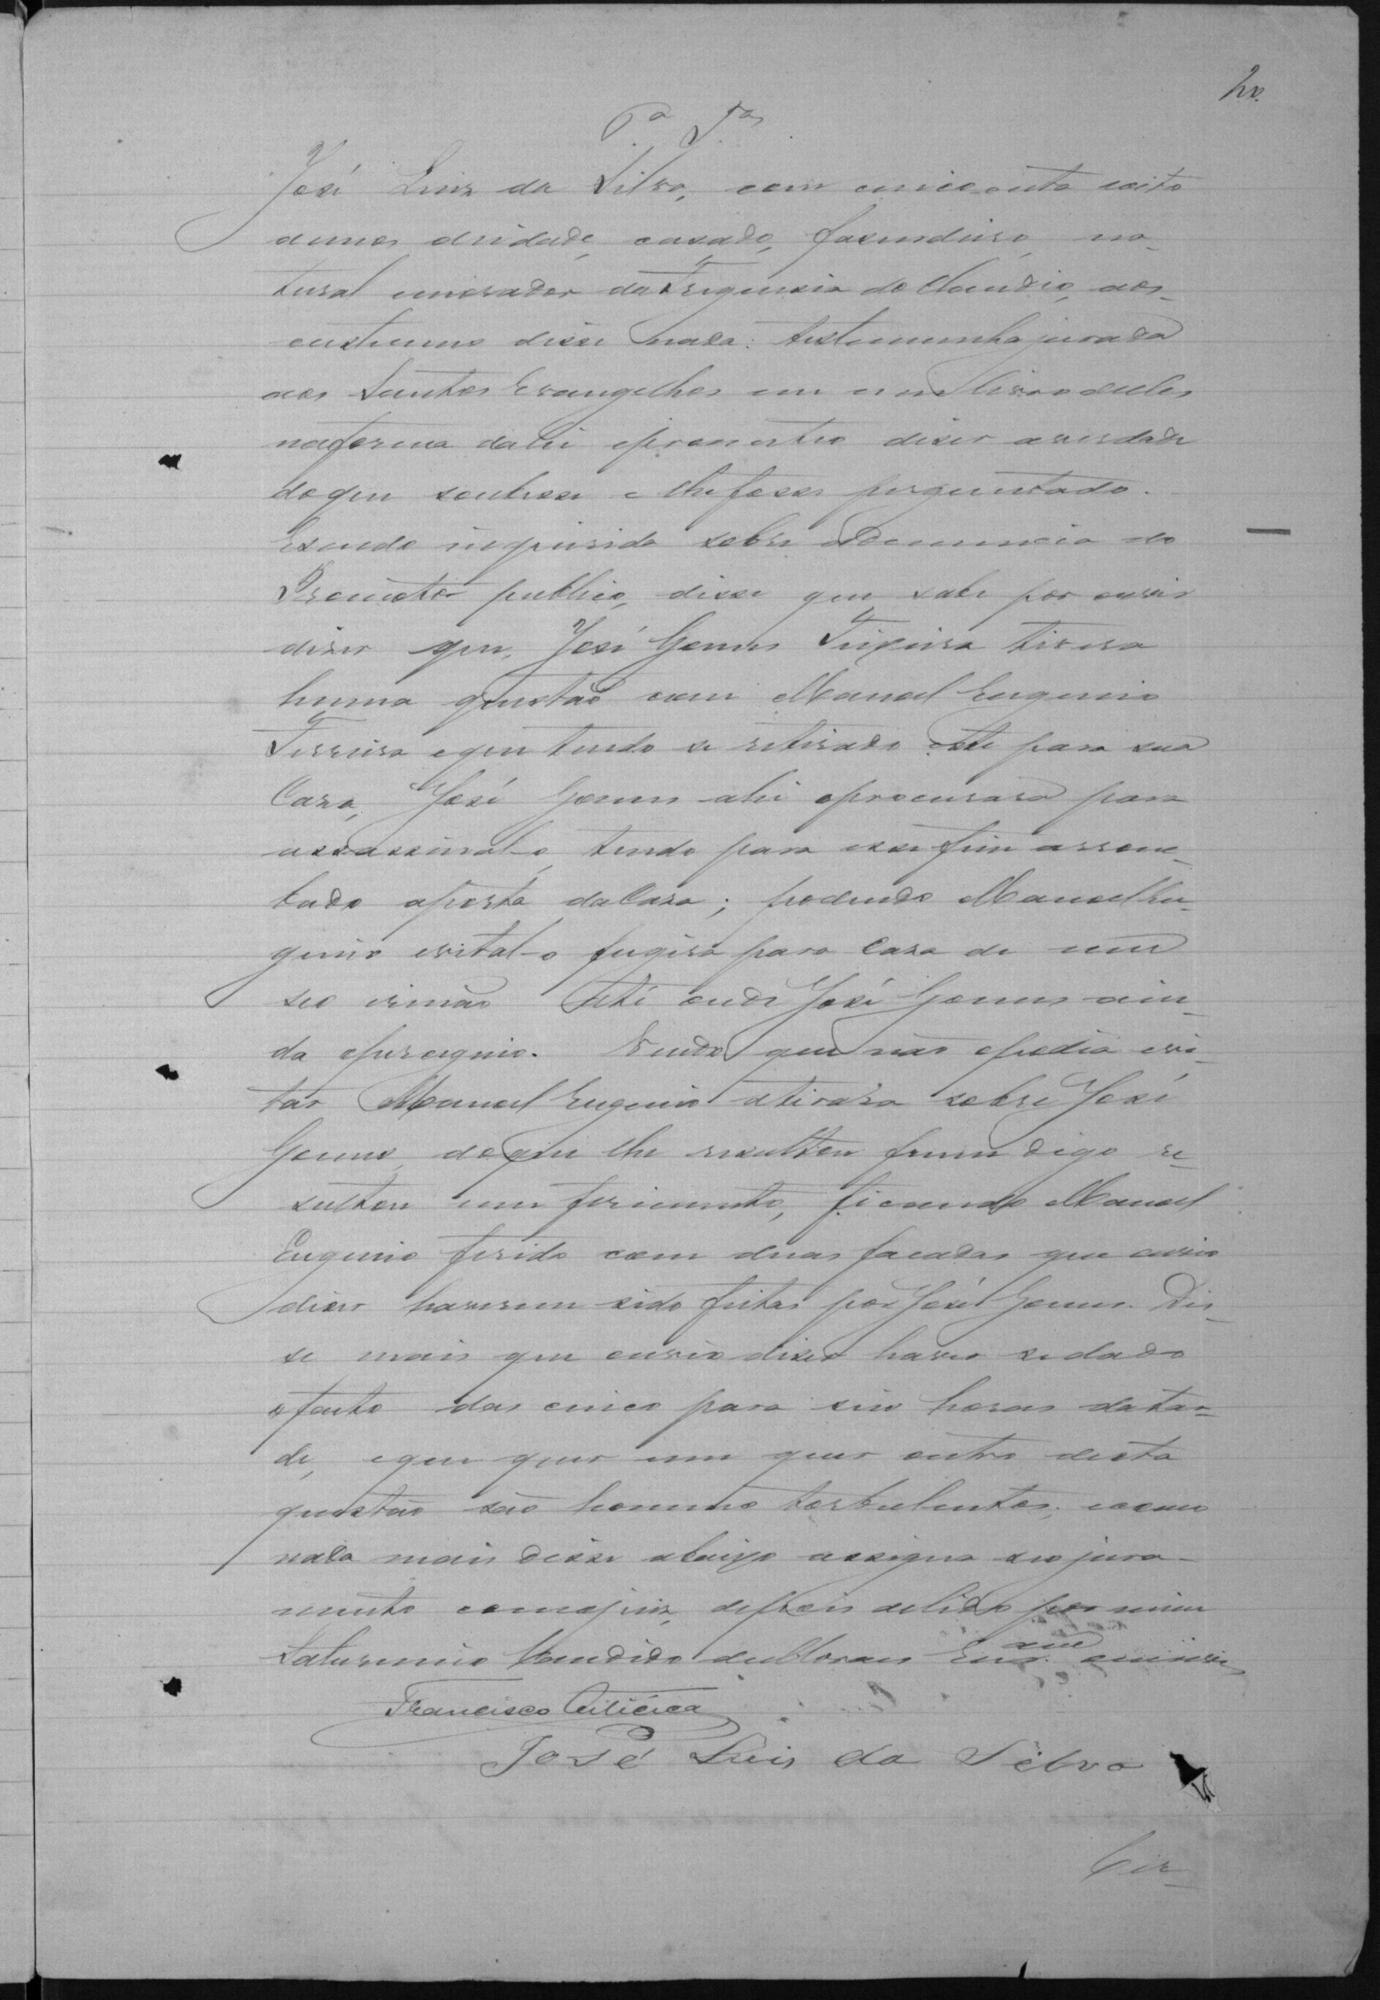 20.
P.ª T.ª
José Luiz da Silva, com cincoenta eoito
annos deidade, casado, fasendeiro, na-
tural emorador dafreguesia do Claudio, aos
custumes disse nada: testemunha jurada
aos Santos Evangelhos em um livro delles
naforma dalei eprometteo diser averdade
doque soubesse e lhefosse perguntado.
Esendo inquirida sobre aDenuncia do
Promotor publico, disse que sabe por ouvir
diser que, José Gomes Teixeira tivera
huma questão com Manoel Eugenio
Ferreira eque tendo se retirado este para sua
Casa, José Gomes ahi oprocurara para
assassinal-o, tendo para esse fim arrom-
bado aporta daCasa; podendo Manoel Eu-
genio evital-o fugira para Casa de um
seo irmão até onde José Gomes ain-
da operseguio. Vendo que não opodia evi-
tar Manoel Eugenio atirara sobre José
Gomes, doque lhe resultou digo re-
sultou um ferimento, ficando Manoel
Eugenio ferido com duas facadas que ouvio
diser haverem sido feitas por José Gomes. Dis-
se mais que ouvio diser haver sedado
ofacto das cinco para seis horas datar-
de, eque quer um quer outro desta
questão são homens turbulentos; ecomo
nada mais disse abaixo assigna seo jura-
mento comojuiz, depois delido por mim
Saturnino Candido deMoraes Escr.am que
Francisco
José Luis da Silva
Cer-